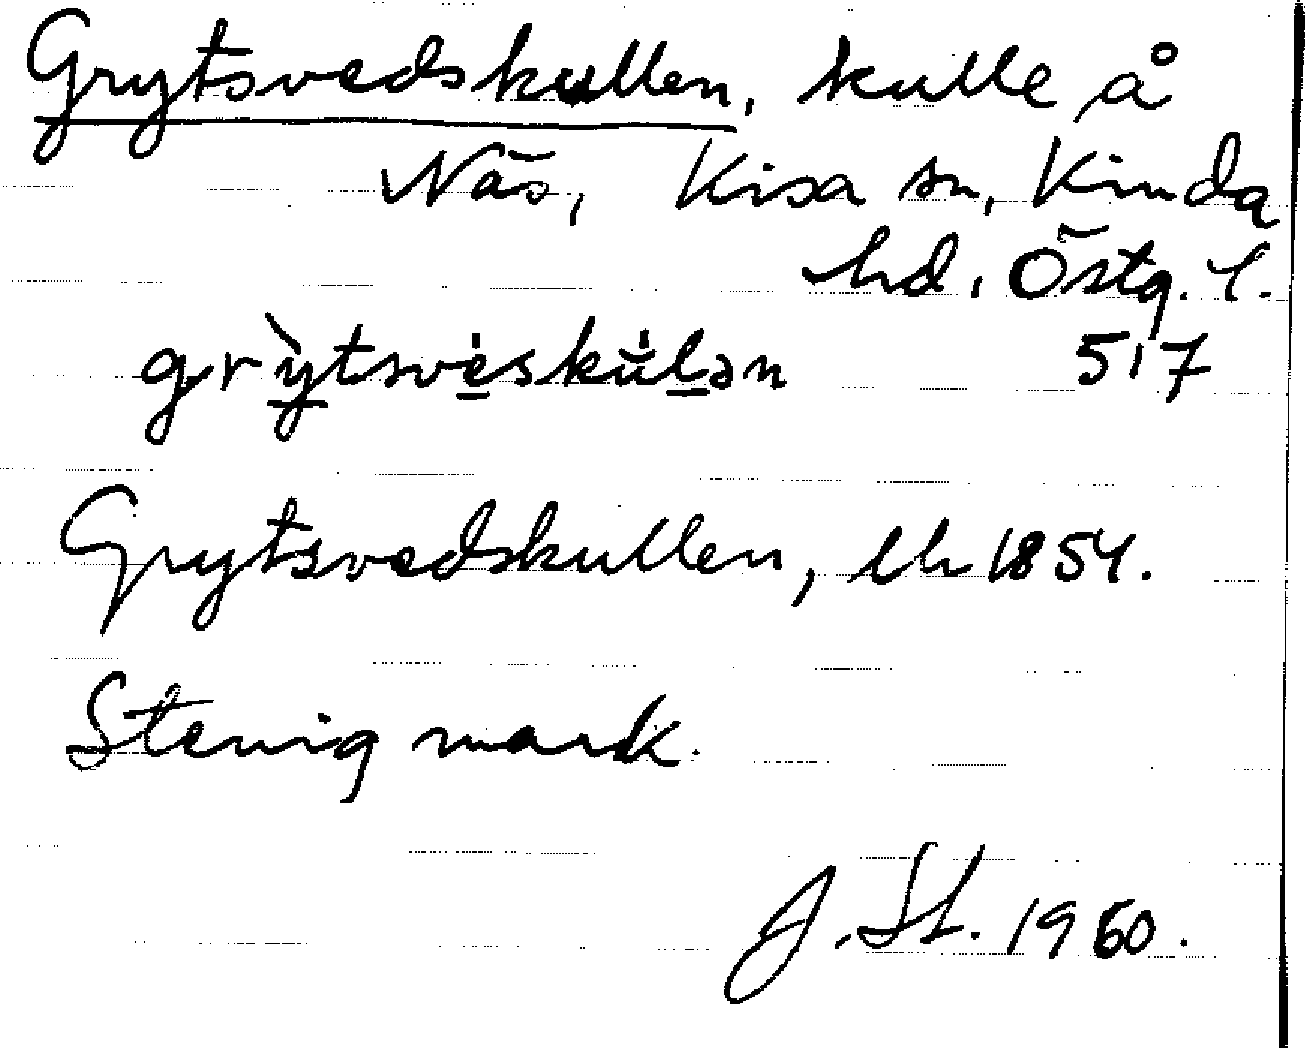 Grytsvedskullen, kulle å
Näs, Kisa sn, Kinda
hd, Östg. l.
grỳtsvèskùlən 517
Grytsvedskullen, lh 1854.
Stenig mark.
J. St. 1960.